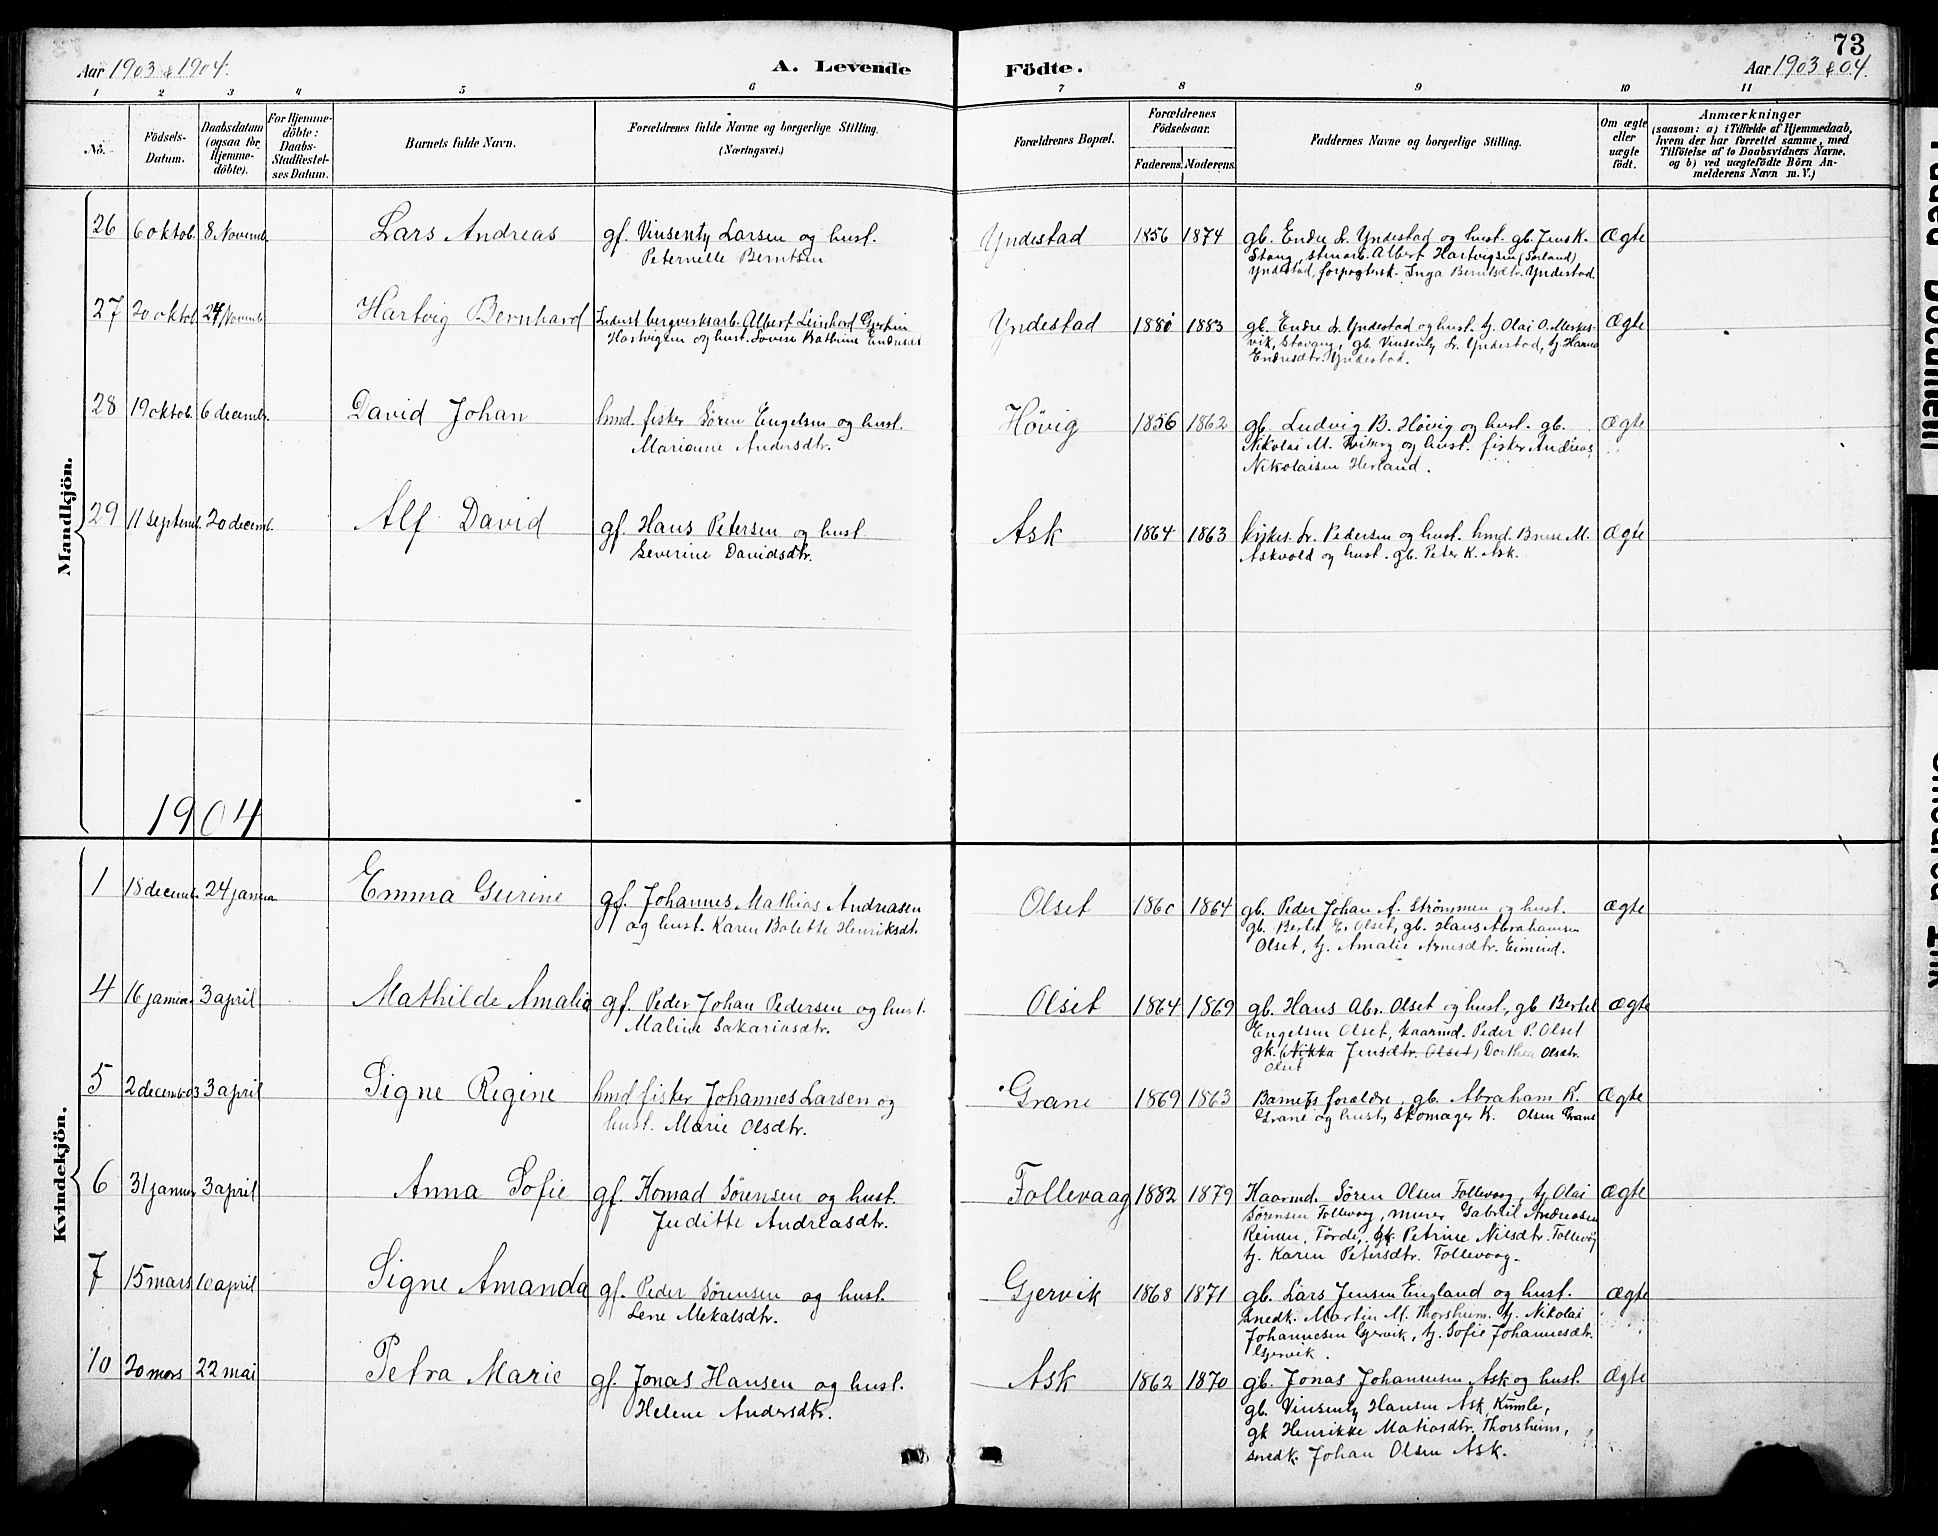 73
Aar 1903 & 1904.
A. Levende
Födte.
Aar 1903 & 04.
1 2 3 4 5 6 7 8 9 10 11
No.
Födsels-Datum.
Daabsdatum (ogsaa for Hjemme-döbte).
For Hjemme-döbte: Daabs-Stadfæstel-ses Datum.
Barnets fulde Navn.
Forældrenes fulde Navne og borgerlige Stilling. (Næringsvei.)
Forældrenes Bopæl.
Forældrenes Födselsaar.
Faderens. Moderens.
Faddernes Navne og borgerlige Stilling.
Om ægte eller uægte födt.
Anmærkninger
(saasom: a) i Tilfælde af Hjemmedaab, hvem der har forrettet samme, med Tilföielse af to Daabsvidners Navne, og b) ved uægtefödte Börn An-melderens Navn m. V.)
Mandkjön.
26 6 oktob. 8 Novemb. Lars Andreas gf. Vinsenty Larsen og hust. Yndestad 1856 1874 gb. Endre Sr. Yndestad og hust. gb. Jens K. Ægte
Peternelle Berntsen
Stang, stenarb. Albert Hartvigsen (Sörland)
Yndestad, forpagtersk. Inga Berntsdtr. Yndestad.
27 20 oktob. 24 Novemb. Hartvig Bernhard Indust bergverksarb. Albert Leinhord Yndestad 1880 1883 gb. Endre Sr. Yndestad og hust. tj. Olai O. Ægte
Hartvigsen og hust. Lovise Kathrine
vik, Stavang, gb. Vinsenty Sr. Yndestad, tj. Hanna
Endresdtr. Yndestad.
28 19 oktob. 6 decemb. David Johan hmd. fisker Sören Engelsen og hust. Hövig 1856 1862 gb. Ludvig B. Hövig og hust. gb. Ægte
Marianne Andersdtr.
Nikolai M. og hust. fisker Andreas
Nikolaisen Herland.
29 11 septemb. 20 decemb. Alf David gf. Hans Petersen og hust Ask 1864 1863 kirkes. Sr. Pedersen og hust. hmd. M. Ægte
Severine Davidsdtr.
Askvold og hust. gb. Peter K. Ask.
1904
Kvindekjön.
1 18 decemb. 24 janua Emma Gurine gf. Johannes Mathias Andreasen Olset 1860 1864 gb. Peder Johan A. Strömmen og hust. Ægte
og hust. Karen Bolette Henriksdt.
gb. Bertel E. Olset, gb. Hans Abrahamsen
Olset, tj. Amalie Arnesdtr. Eimind.
4 16 janua. 3 april Mathilde Amalia gf. Peder Johan Pedersen og hust. Olset 1864 1869 gb. Hans Abr. Olset og hust., gb Bertel Ægte
Maline Sakariasdtr.
Engelsen Olset, kaarmd. Peder P. Olset
gk. (Nikka Jensdtr. Olset) Dorthea Olsdtr.
Olset
5 2 decemb 03 3 april Signe Regine hmd fisker Johannes Larsen og Grane 1869 1863 Barnets forældre, gb. Abraham K. Ægte
hust. Marie Olsdtr.
Grane og hust, skomager K. Olsen Grane
6 31 januar 3 april Anna Sofie gf. Konrad Sörensen og hust. Follevaag 1882 1879 Kaarmd. Sören Olsen Follevaag, tj Olai Ægte
Juditte Andreasdtr.
Sörensen Follevaag, murer Gabriel Andreasen
Reinen, Förde, gk. Petrine Nilsdtr. Follevåg
tj. Karen Petersdtr. Follevaag.
7 15 mars 10 april Signe Amanda gf. Peder Sörensen og hust. Gjervik 1868 1871 gb. Lars Jensen England og hust. Ægte
Lene Mekalsdtr.
snedk. Martin M. Thorsheim. tj. Nikolai
Johannesen Gjervik, tj. Sofie Johannesdtr.
Gjervik.
10 20 mars 22 mai Petra Marie gf. Jonas Hansen og hust. Ask 1862 1870 gb. Jonas Johannesen Ask og hust. Ægte
Helene Andersdtr.
gb. Vinsenty Hansen Ask, Kumle,
gk Henrikke Matiasdtr. Thorsheim,
snedk. Johan Olsen Ask.